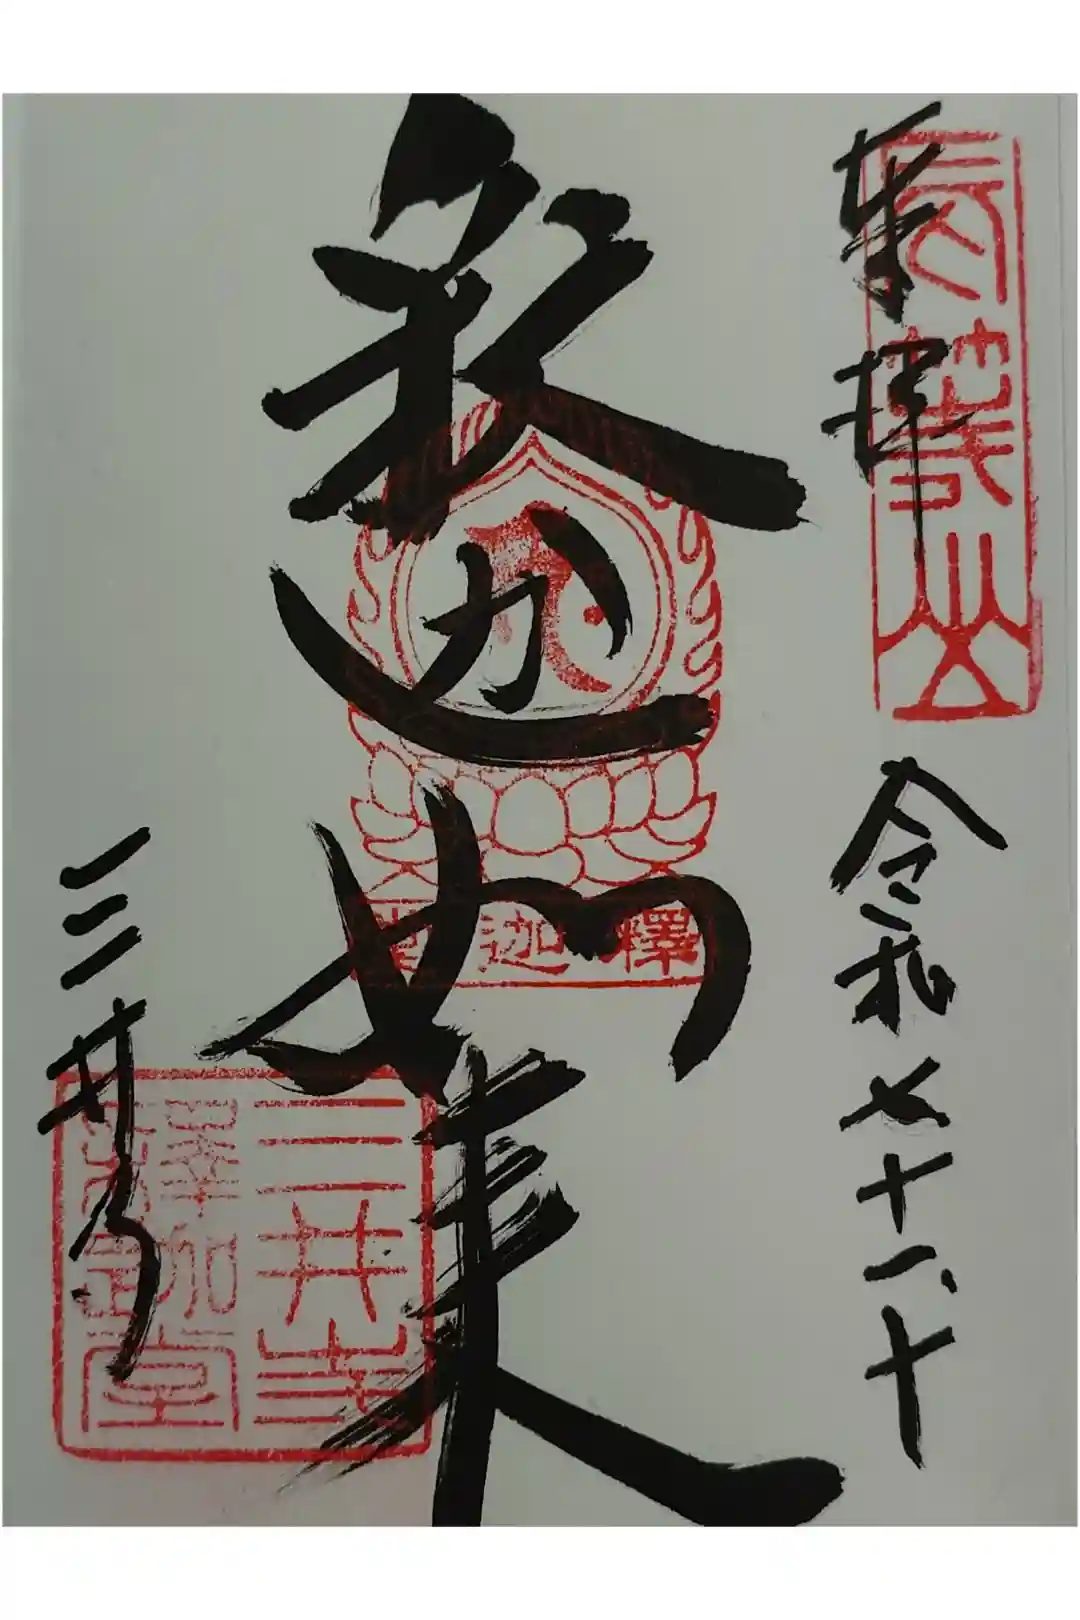 奉拝
長等山
令和七十一、十
釈迦如来
釋迦堂
三井寺
三井寺
釋迦堂